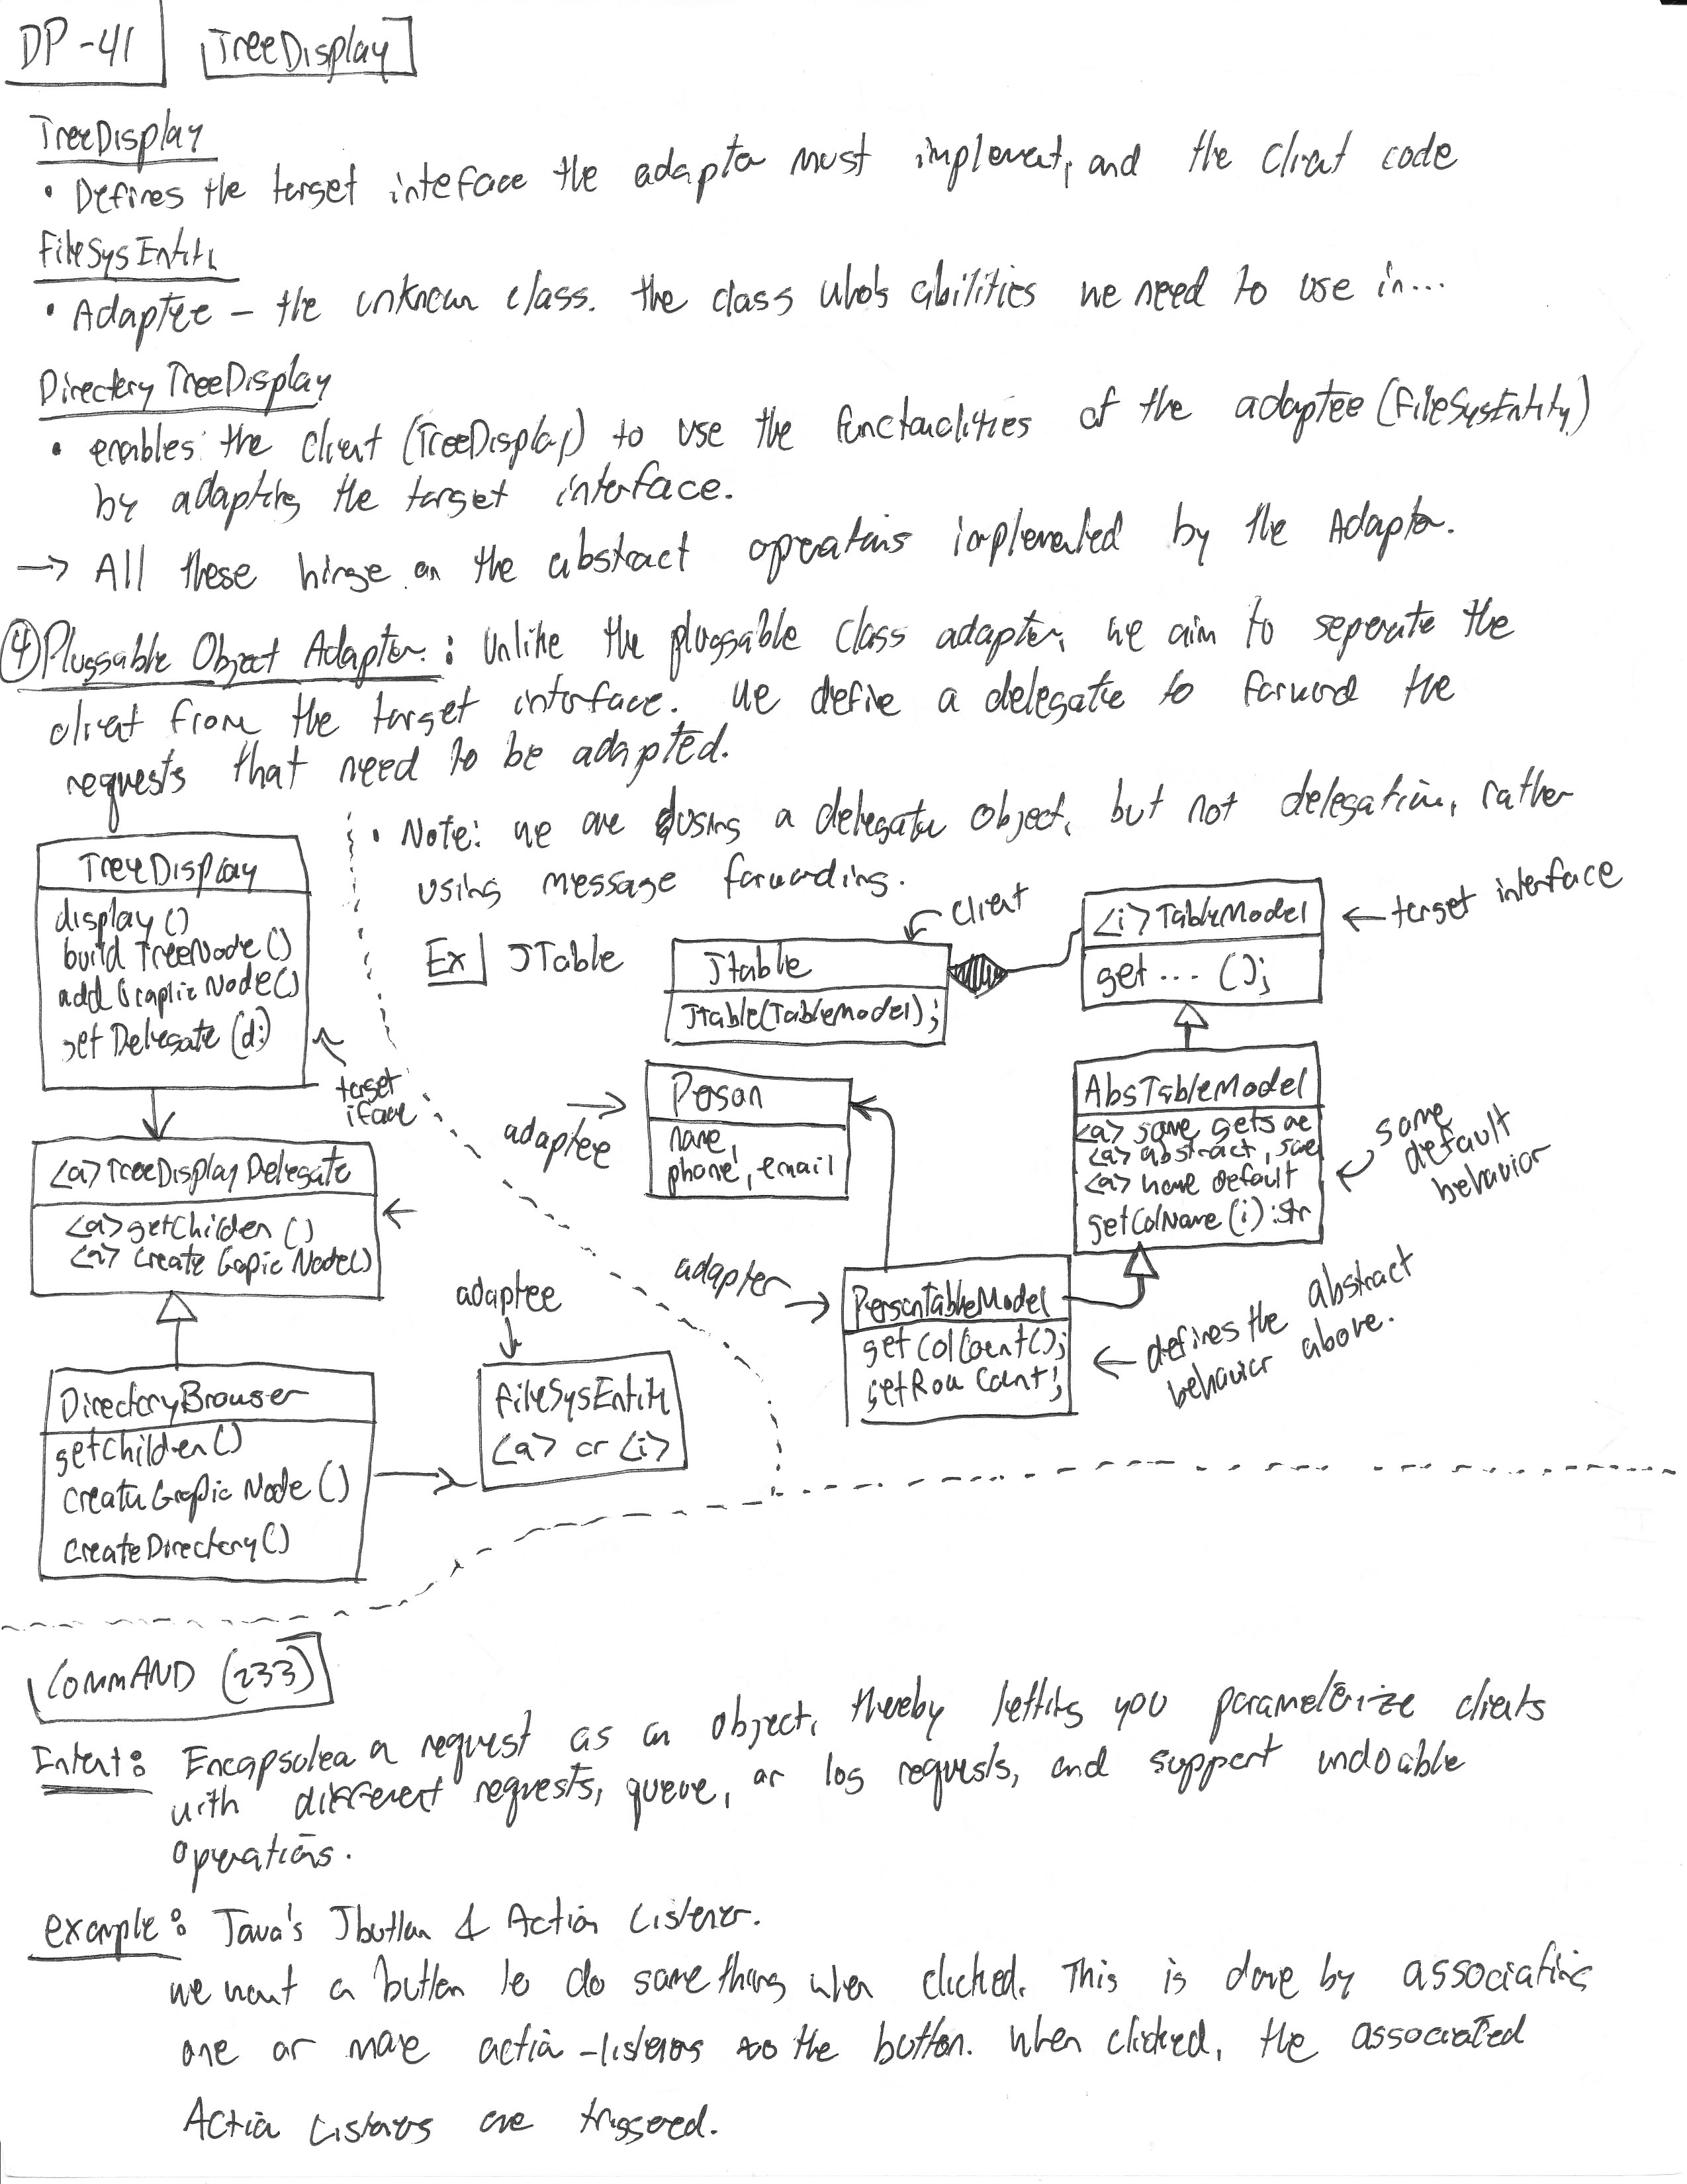 DP-41 TreeDisplay
TreeDisplay
• Defines the target inteface the adapter must implement, and the client code
FileSysEntity
• Adaptee - the unknown class. the class who's abilities we need to use in...
Directory TreeDisplay
• enables the client (TreeDisplay) to use the functionalities of the adaptee (FileSysEntity)
by adapting the target interface.
→ All these hinge on the abstract operations implemented by the Adapter.
④ Pluggable Object Adapter: Unlike the pluggable class adapter, we aim to seperate the
client from the target interface. We define a delegate to forward the
requests that need to be adapted.
• Note: we are using a delegate object, but not delegation, rather
using message forwarding.
TreeDisplay
display()
build TreeNode()
add Graphic Node()
set Delegate (d:)
target
iface
<a> TreeDisplay Delegate
<a> getChilden ()
<a> create Gapic Node()
DirectoryBrowser
getChilden()
create Grapic Node()
createDirectory()
adaptee
FileSysEntity
<a> or <i>
Ex| JTable
client
Jtable
Jtable(TableModel);
<i> TableModel
get ... ();
← target interface
adaptee
Person
name,
phone, email
AbsTableModel
<a> some gets are
<a> abstract, some
<a> have default
getColName (i):str
some
default
behavior
adapter
PersonTableModel
getColCount();
getRow Count;
← defines the abstract
behavior above.
CommAND (233)
Intent: Encapsulea a request as an object, thereby letting you parameterize clients
with different requests, queue, or log requests, and support undoable
operations.
example: Java's Jbutton & Action Listener.
we want a button to do something when clicked. This is done by associating
one or more action-listeners to the button. When clicked, the associated
Action Listeners are triggered.